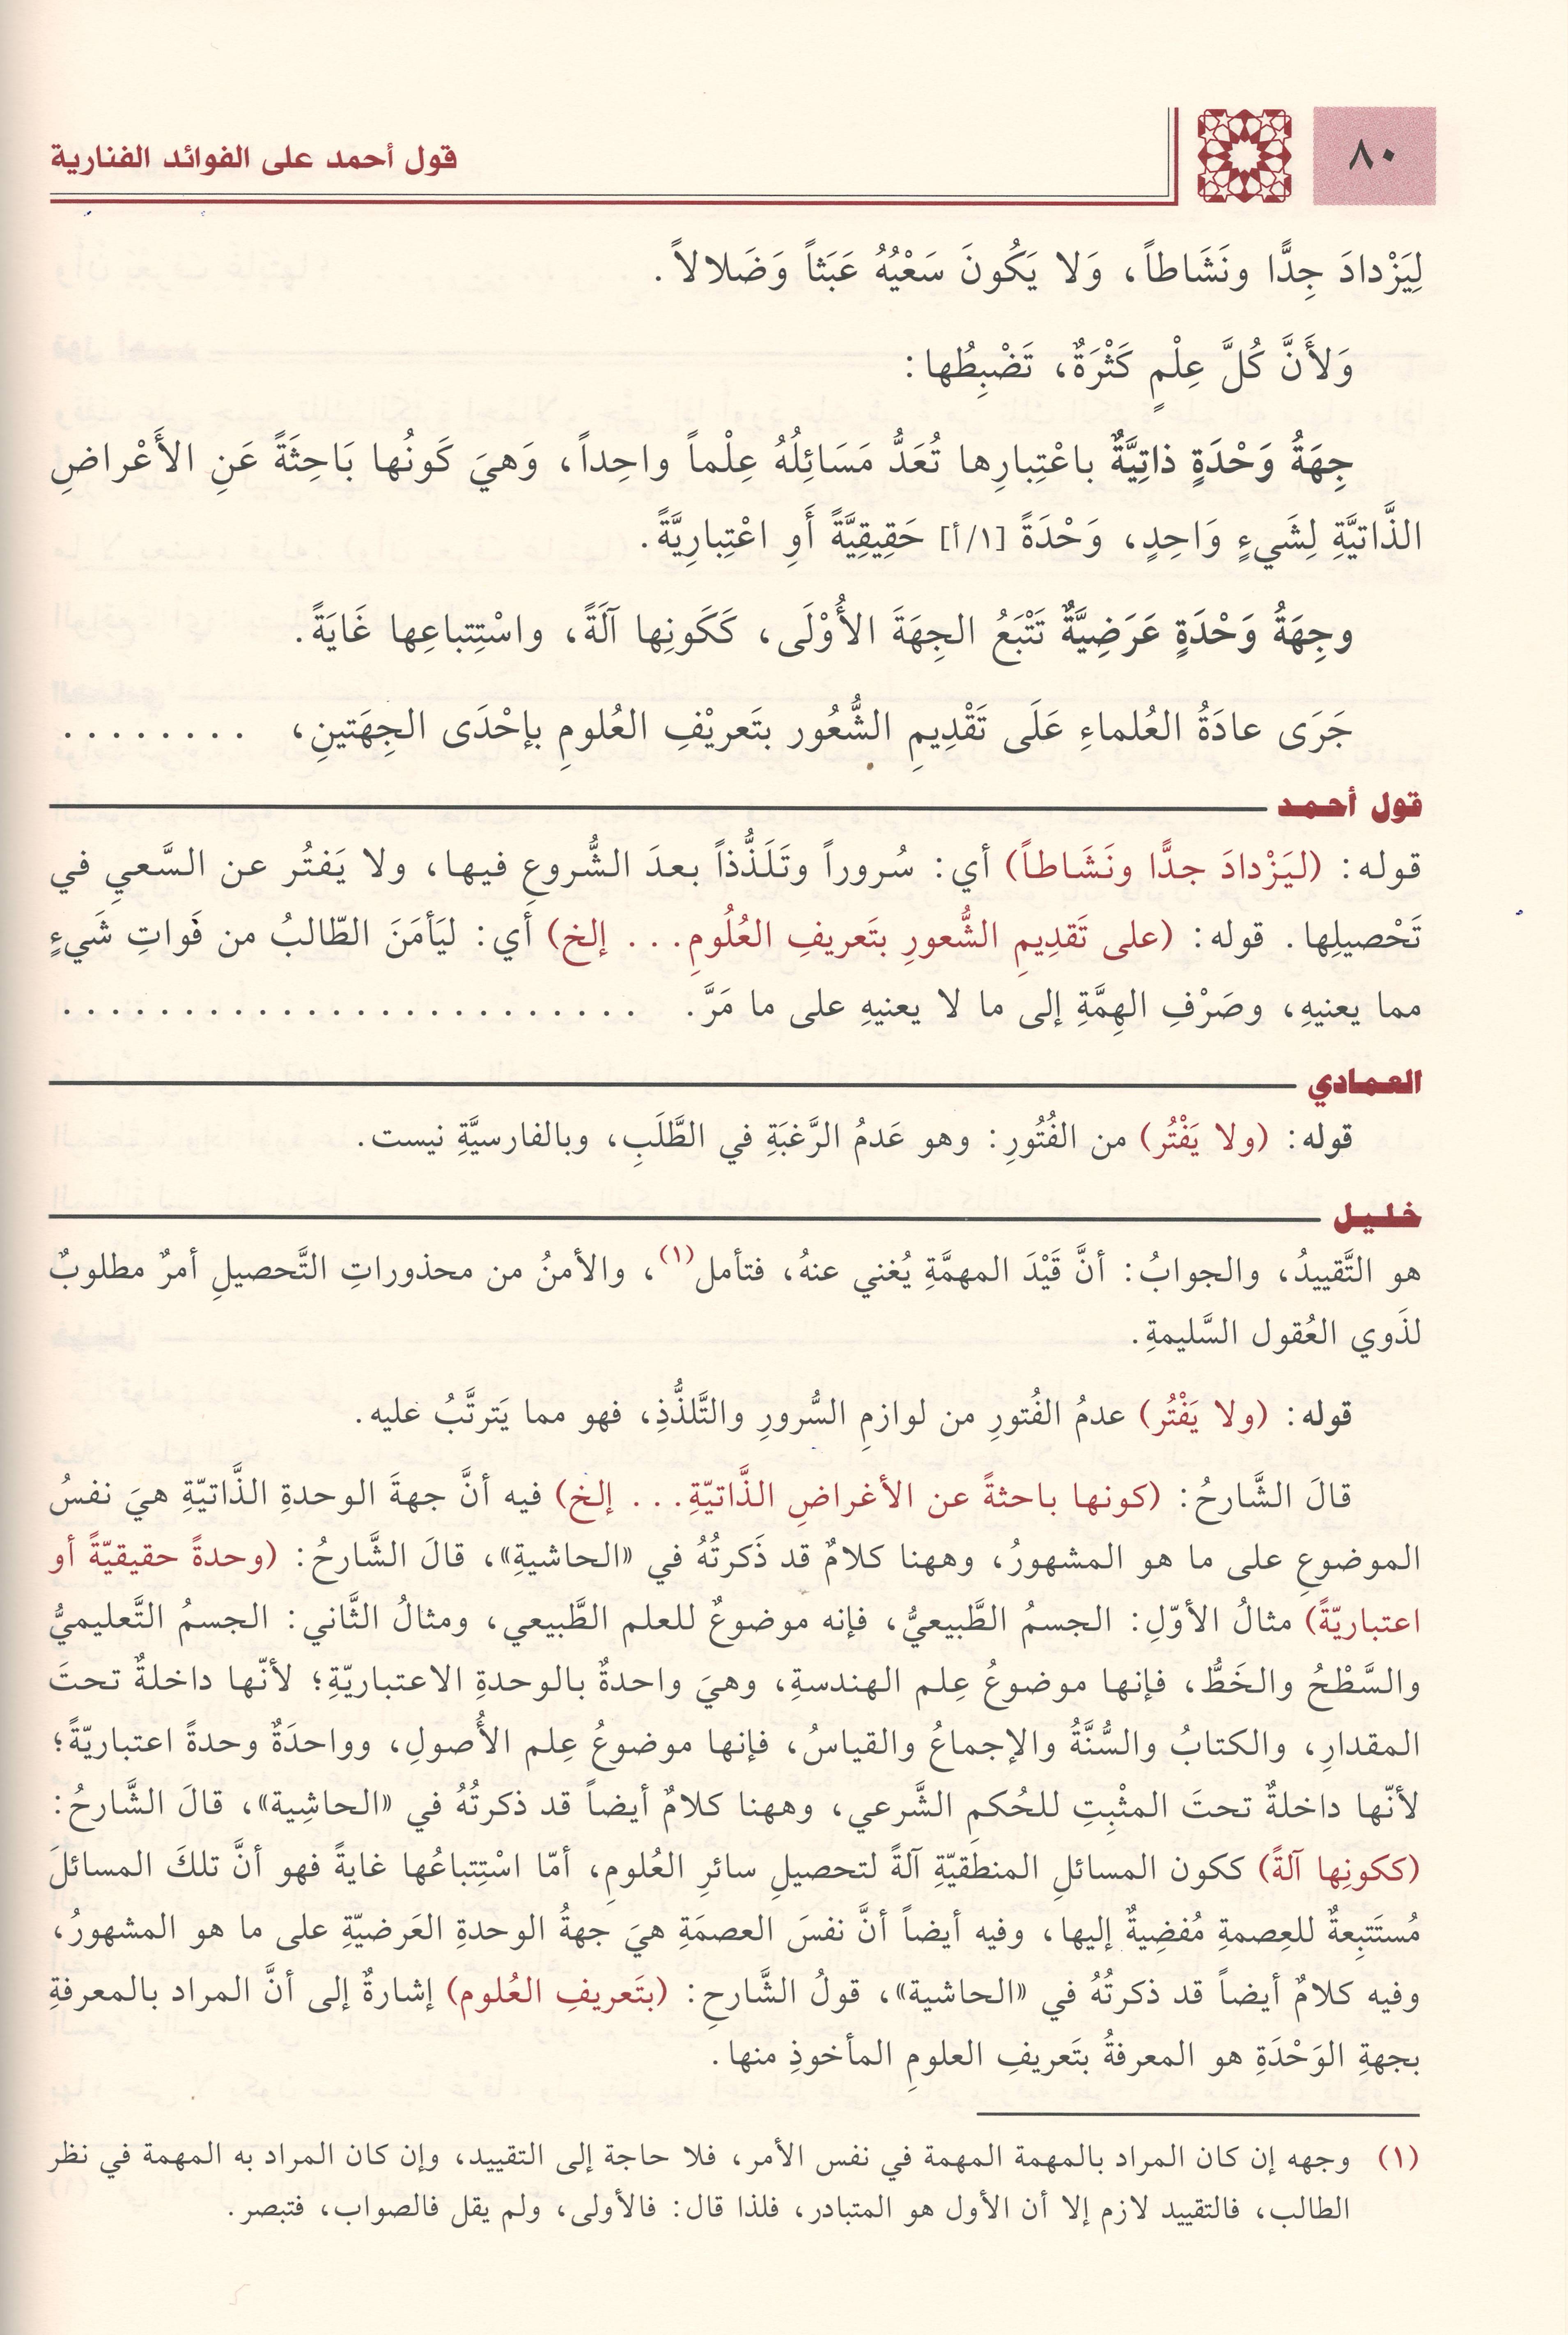 ٨٠
قول أحمد على الفوائد الفنارية
لِيَزْدادَ جِدًّا ونَشَاطاً، وَلا يَكُونَ سَعْيُهُ عَبَثاً وَضَلالاً.
وَلأَنَّ كُلَّ عِلْمٍ كَثْرَةٌ، تَضْبِطُها:
جِهَةُ وَحْدَةٍ ذاتِيَّةٌ باعْتِبارِها تُعَدُّ مَسَائِلُهُ عِلْماً واحِداً، وَهيَ كَونُها بَاحِثَةً عَنِ الأَعْراضِ
الذَّاتيَّةِ لِشَيءٍ وَاحِدٍ، وَحْدَةً [١/أ] حَقِيقِيَّةً أَوِ اعْتِبارِيَّةً.
وجِهَةُ وَحْدَةٍ عَرَضِيَّةٌ تَتْبَعُ الجِهَةَ الأُوْلَى، كَكَونِها آلَةً، واسْتِتباعِها غَايَةً.
جَرَى عادَةُ العُلماءِ عَلَى تَقْدِيمِ الشُّعُور بتَعريْفِ العُلومِ بإحْدَى الجِهَتينِ، ........
قول أحمد
قوله: (ليَزْدادَ جدًّا ونَشَاطاً) أي: سُروراً وتَلَذُّذاً بعدَ الشُّروعِ فيها، ولا يَفتُر عن السَّعيِ في
تَحْصيلِها. قوله: (على تَقدِيمِ الشُّعورِ بتَعريفِ العُلُومِ... إلخ) أي: ليَأمَنَ الطّالبُ من فَواتِ شَيءٍ
مما يعنيهِ، وصَرْفِ الهِمَّةِ إلى ما لا يعنيهِ على ما مَرَّ. ........................
العمادي
قوله: (ولا يَفْتُر) من الفُتُورِ: وهو عَدمُ الرَّغبَةِ في الطَّلَبِ، وبالفارسيَّةِ نيست.
خليل
هو التَّقييدُ، والجوابُ: أنَّ قَيْدَ المهمَّةِ يُغني عنهُ، فتأمل(١)، والأمنُ من محذوراتِ التَّحصيلِ أمرٌ مطلوبٌ
لذَوي العُقول السَّليمةِ.
قوله: (ولا يَفْتُر) عدمُ الفُتورِ من لوازمِ السُّرورِ والتَّلذُّذِ، فهو مما يَترتَّبُ عليه.
قالَ الشَّارحُ: (كونها باحثةً عن الأغراضِ الذَّاتيّةِ... إلخ) فيه أنَّ جهةَ الوحدةِ الذَّاتيّةِ هيَ نفسُ
الموضوعِ على ما هو المشهورُ، وههنا كلامٌ قد ذَكرتُهُ في «الحاشيةِ»، قالَ الشَّارحُ: (وحدةً حقيقيّةً أو
اعتباريّةً) مثالُ الأوّلِ: الجسمُ الطَّبيعيُّ، فإنه موضوعٌ للعلم الطَّبيعي، ومثالُ الثَّاني: الجسمُ التَّعليميُّ
والسَّطْحُ والخَطُّ، فإنها موضوعُ عِلم الهندسةِ، وهيَ واحدةٌ بالوحدةِ الاعتباريّةِ؛ لأنّها داخلةٌ تحتَ
المقدارِ، والكتابُ والسُّنَّةُ والإجماعُ والقياسُ، فإنها موضوعُ عِلم الأُصولِ، وواحدَةٌ وحدةً اعتباريّةً؛
لأنّها داخلةٌ تحتَ المثْبِتِ للحُكمِ الشَّرعي، وههنا كلامٌ أيضاً قد ذكرتُهُ في «الحاشِية»، قالَ الشَّارحُ:
(ككونِها آلةً) ككون المسائلِ المنطقيّةِ آلةً لتحصيلِ سائرِ العُلومِ، أمّا اسْتِتباعُها غايةً فهو أنَّ تلكَ المسائلَ
مُستَتبِعةٌ للعِصمةِ مُفضِيةٌ إليها، وفيه أيضاً أنَّ نفسَ العصمَةِ هيَ جهةُ الوحدةِ العَرضيّةِ على ما هو المشهورُ،
وفيه كلامٌ أيضاً قد ذكرتُهُ في «الحاشية»، قولُ الشَّارحِ: (بتَعريفِ العُلوم) إشارةٌ إلى أنَّ المراد بالمعرفةِ
بجهةِ الوَحْدَةِ هو المعرفةُ بتَعريفِ العلومِ المأخوذِ منها.
(١) وجهه إن كان المراد بالمهمة المهمة في نفس الأمر، فلا حاجة إلى التقييد، وإن كان المراد به المهمة في نظر
الطالب، فالتقييد لازم إلا أن الأول هو المتبادر، فلذا قال: فالأولى، ولم يقل فالصواب، فتبصر.